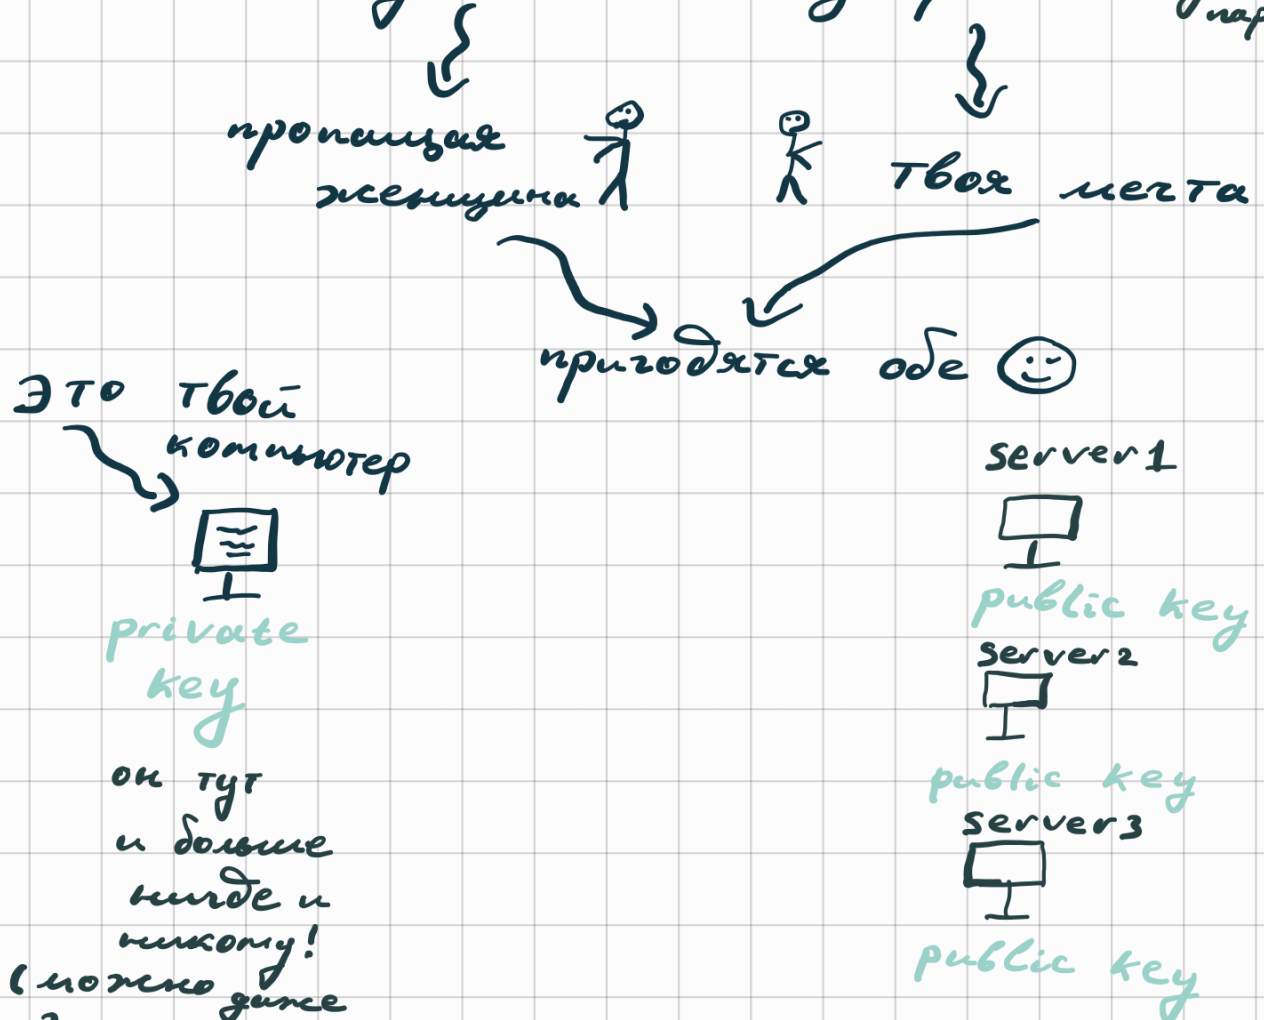 пар
пропащая
женщина
твоя мечта
пригодятся обе
это твой
компьютер
private
key
он тут
и больше
нигде и
никому!
(можно даже
server1
public key
server2
public key
server3
public key